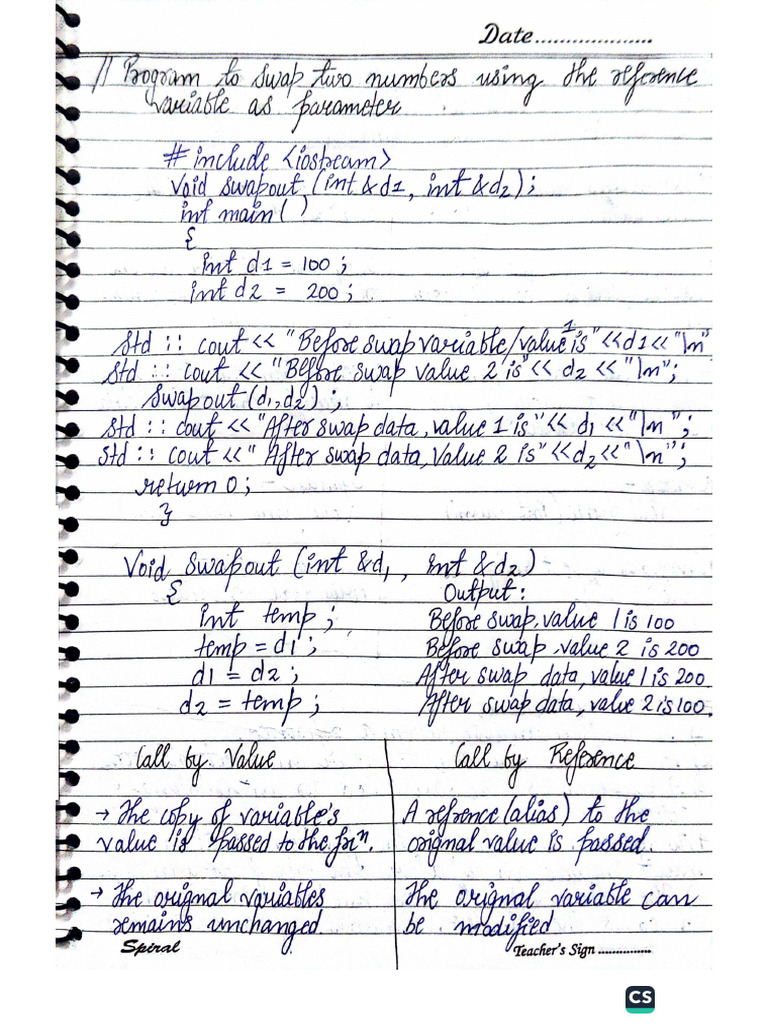 Date....................
// Program to swap two numbers using the reference
variable as parameter
# include <iostream>
void swapout (int &d1, int &d2);
int main ( )
{
int d1 = 100 ;
int d2 = 200 ;
std :: cout << "Before swap variable/value 1 is" <<d1<< "\n"
std :: cout << "Before swap value 2 is" << d2 << "\n";
swapout (d1,d2) ;
std :: cout << "After swap data, value 1 is" << d1 << "\n" ;
std :: cout << " After swap data, value 2 is" <<d2<< "\n" ;
return 0 ;
}
Void swapout (int &d1 , int &d2)
{
int temp ;
temp = d1 ;
d1 = d2 ;
d2 = temp ;
Output :
Before swap, value 1 is 100
Before swap, value 2 is 200
After swap data, value 1 is 200
After swap data, value 2 is 100.
Call by Value
→ The copy of variable's
value is passed to the fxn.
→ The orignal variables
remains unchanged
Call by Reference
A refrence (alias) to the
orignal value is passed.
The orignal variable can
be modified
Spiral
Teacher's Sign ...............
CS